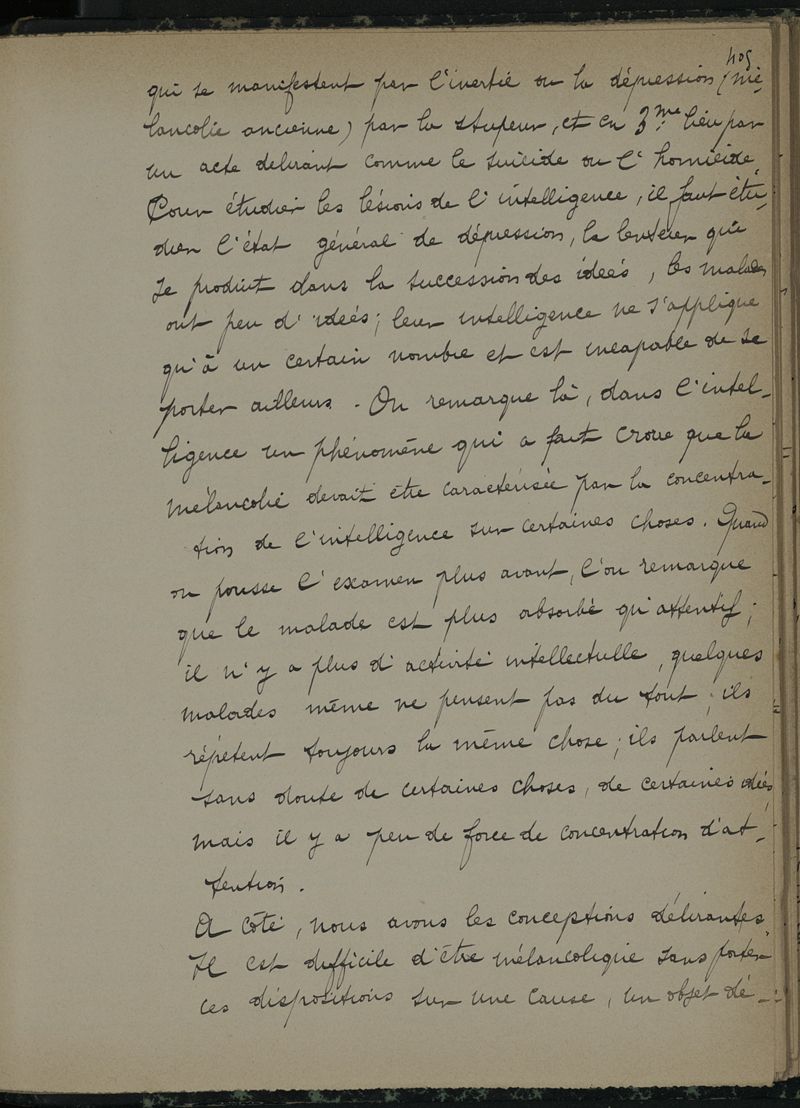 405
qui se manifestent par l'inertie ou la dépression (mé-
lancolie ancienne) par la stupeur, et en 3me lieu par
un acte délirant comme le suicide ou l'homicide.
Pour étudier les lésions de l'intelligence, il faut étu-
dier l'état général de dépression, la lenteur qui
se produit dans la succession des idées, les malades
ont peu d'idées; leur intelligence ne s'applique
qu'à un certain nombre et est incapable de se
porter ailleurs. - On remarque là, dans l'intel-
ligence un phénomène qui a fait croire que la
mélancolie devait être caractérisée par la concentra-
tion de l'intelligence sur certaines choses. Quand
on pousse l'examen plus avant, l'on remarque
que le malade est plus absorbé qu'attentif;
il n'y a plus d'activité intellectuelle, quelques
malades même ne pensent pas du tout; ils
répètent toujours la même chose; ils parlent
sans doute de certaines choses, de certaines idées
mais il y a peu de force de concentration d'at-
tention.
A côté, nous avons les conceptions délirantes
Il est difficile d'être mélancolique sans porter
ces dispositions sur une cause, un objet dé-